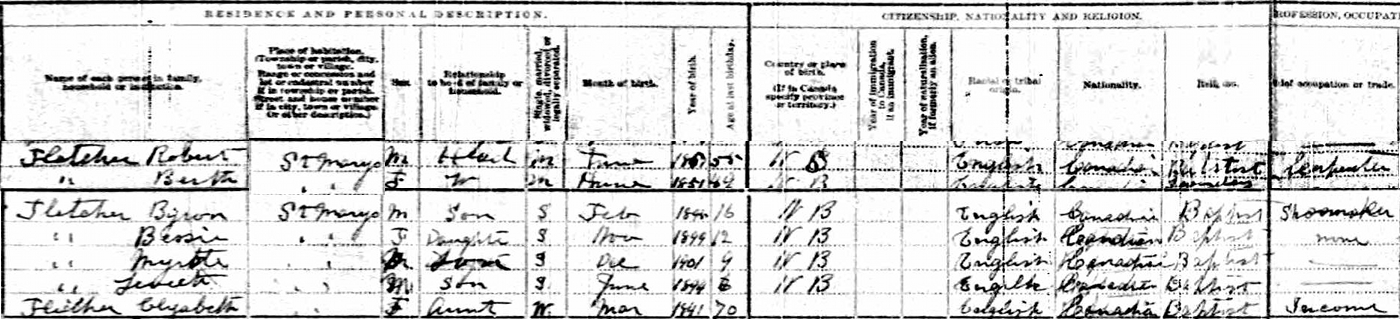 RESIDENCE AND PERSONAL DESCRIPTION. CITIZENSHIP, NATIONALITY AND RELIGION. PROFESSION, OCCUPAT
Name of each person in family, household or institution.
Place of habitation. (Township or parish, city, town or village. Range or concession and lot or cadastral number if in township or parish. Street and house number if in city, town or village. Or other description.)
Sex
Relationship to head of family or household.
Single, married, widowed, divorced or legally separated.
Month of birth.
Year of birth.
Age at last birthday.
Country or place of birth. (If in Canada specify province or territory.)
Year of immigration to Canada, if an immigrant.
Year of naturalization, if formerly an alien.
Racial or tribal origin.
Nationality.
Religion.
Chief occupation or trade.
Fletcher Robert St Marys M Head M June 55 N B English Canadian Carpenter
" Bertha " " F W M N B
Fletcher Byron St Marys M Son S Feb 16 N B English Canadian Baptist Shoemaker
" Bessie " " F Daughter S Nov 1899 12 N B English Canadian Baptist none
" Myrtle " " S Dec 1901 9 N B English Canadian Baptist
" " " M Son S June N B English Canadian Baptist
Fletcher Elizabeth " " F Aunt W Mar 1841 70 English Canadian Baptist Income